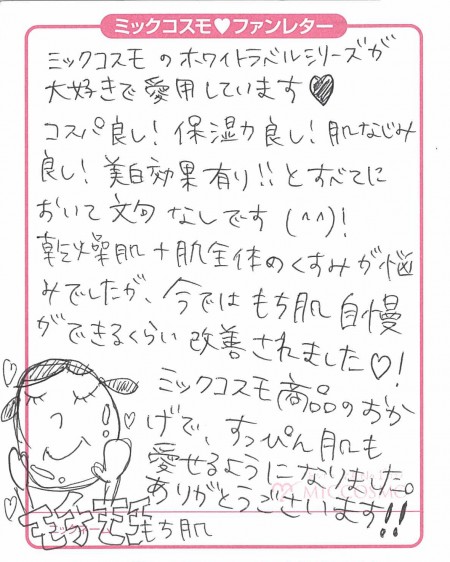 ミックコスモ♥ファンレター
ミックコスモのホワイトラベルシリーズが
大好きで愛用しています♥
コスパ良し!保湿力良し!肌なじみ
良し!美白効果有り!!とすべてに
おいて文句なしです(^^)!
乾燥肌+肌全体のくすみが悩
みでしたが、今ではもち肌自慢
ができるくらい改善されました♡!
ミックコスモ商品のおか
げで、すっぴん肌も
愛せるようになりました。
ありがとうございます!!
MICCOSMO
もち肌